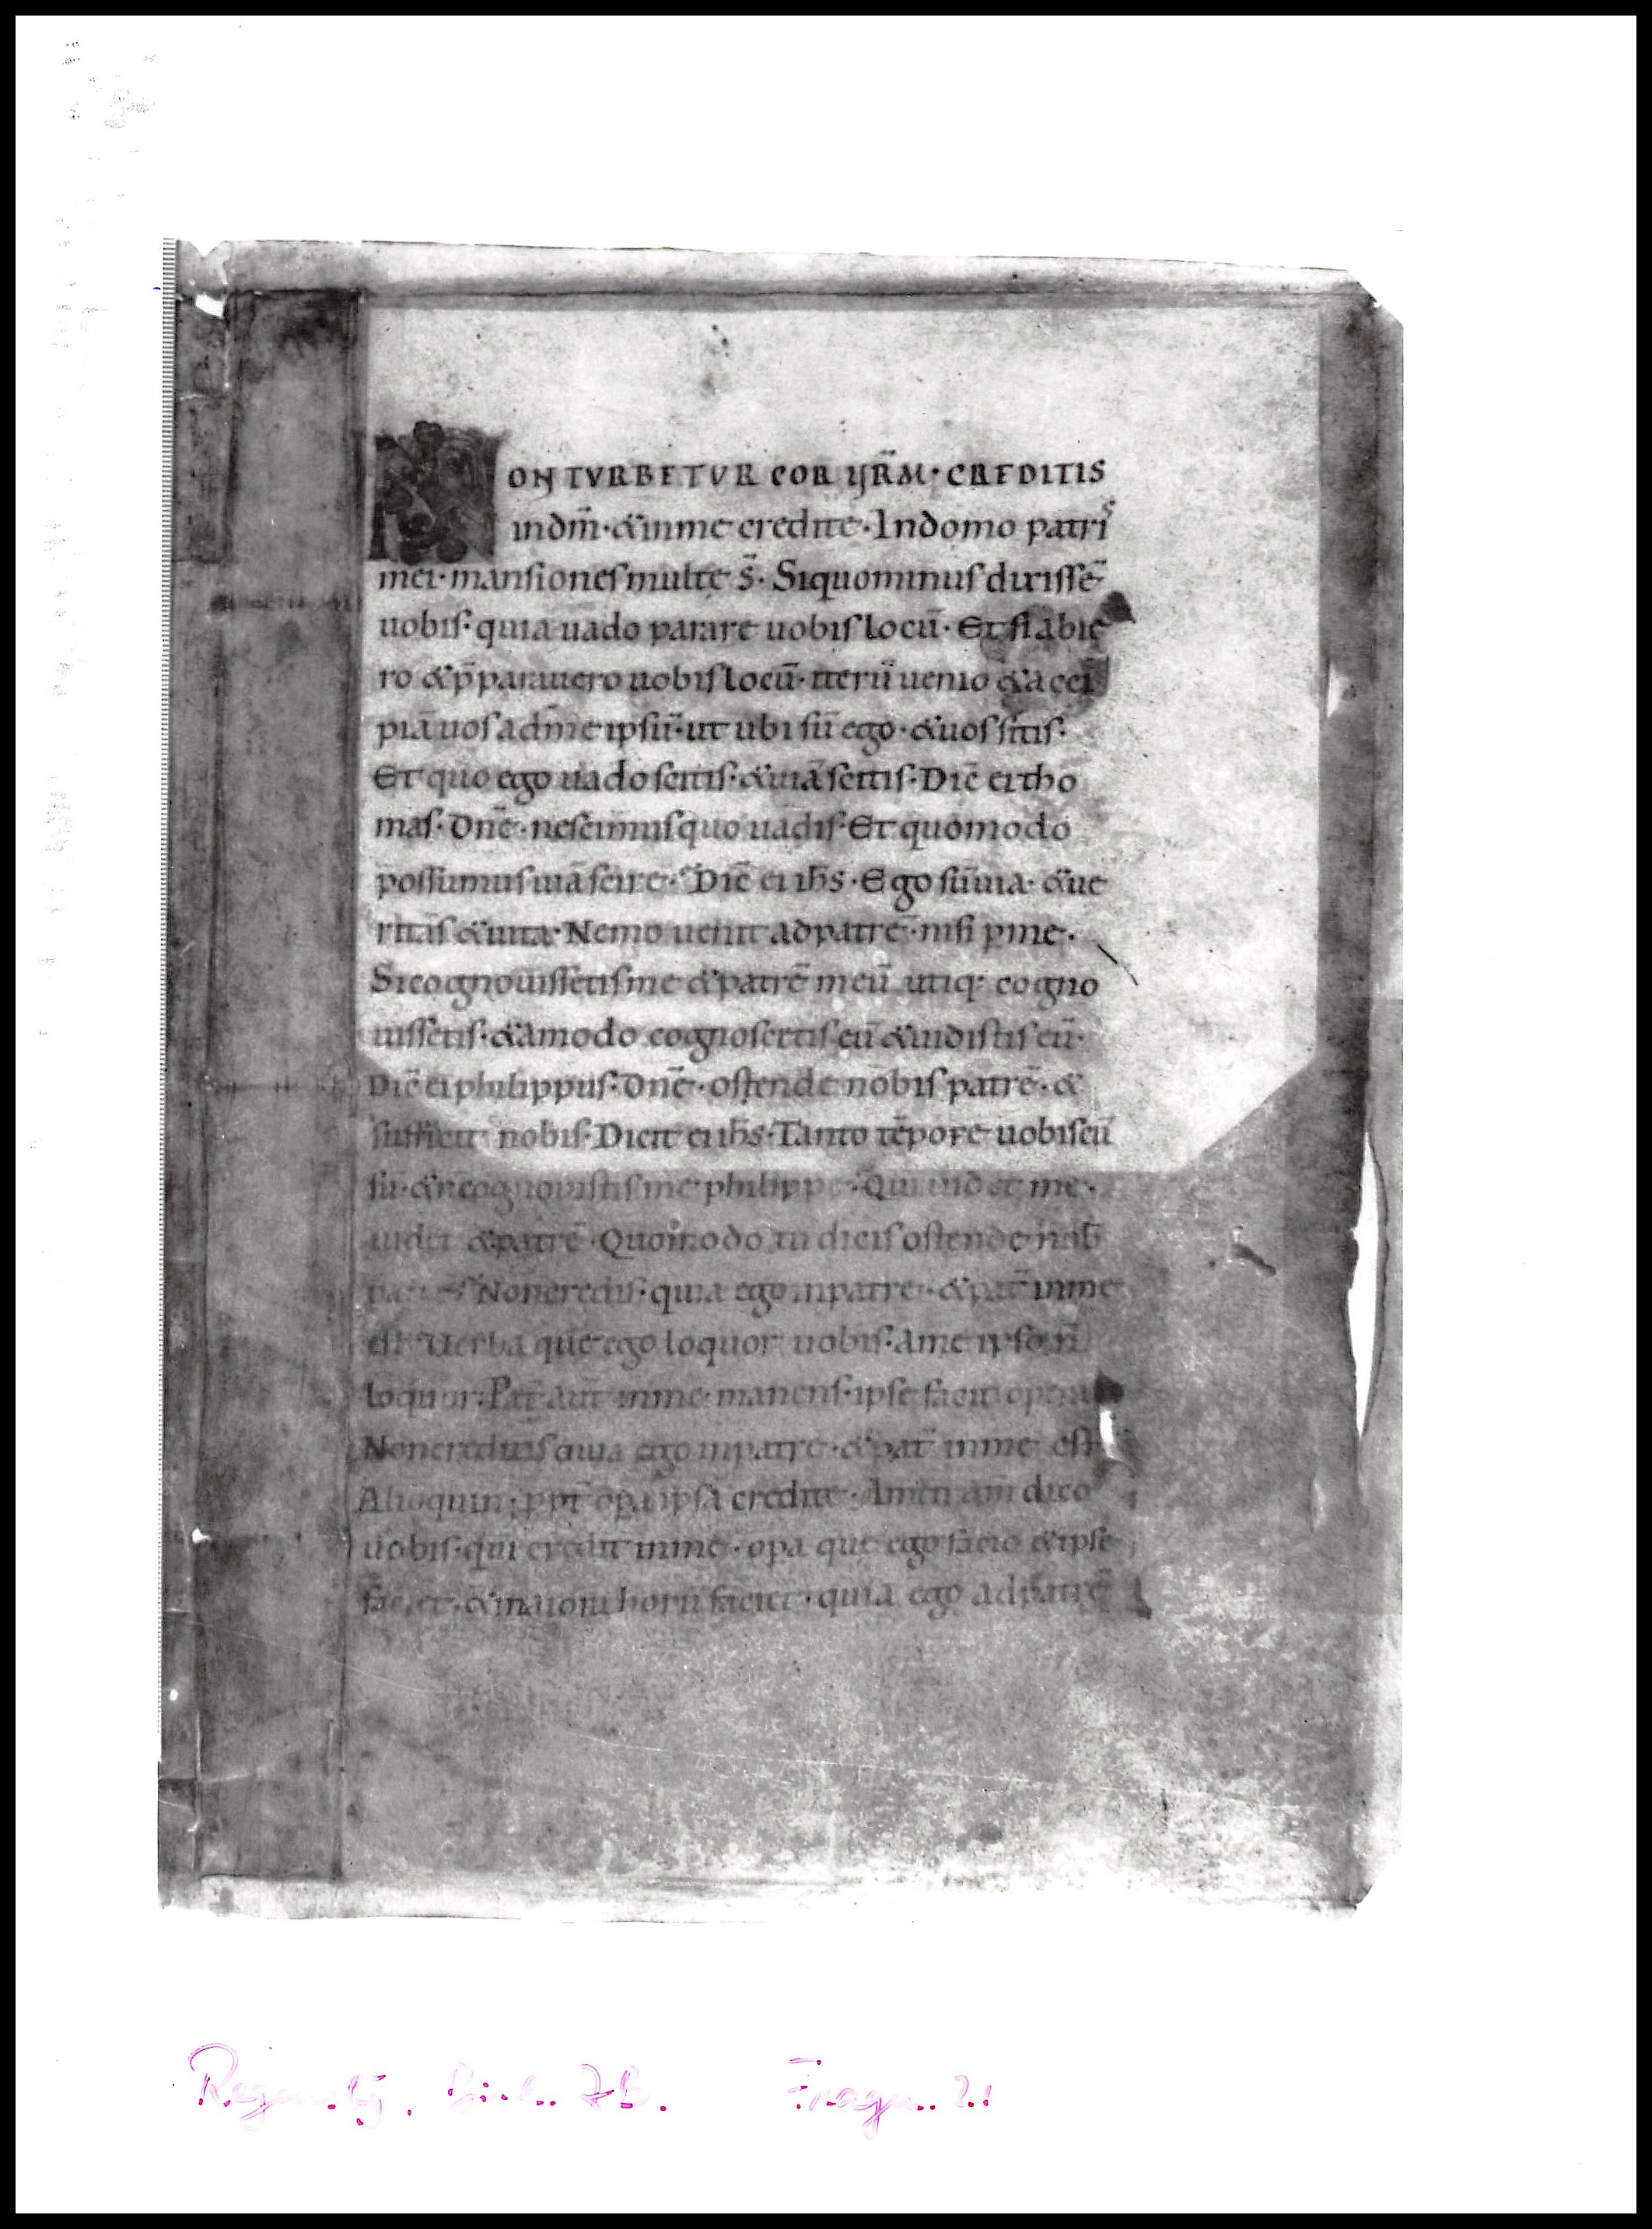 NON TVRBETVR COR VR̄M · CREDITIS
in dm̄ · & in me credite · In domo patris
mei · mansiones multę s̄ · Siquominus dixissē
uobis · quia uado parare uobis locū · Et si abie
ro & p̄parauero uobis locū · iterū uenio & acci
piā uos ad me ipsū · ut ubi sū ego · & uos sitis ·
Et quo ego uado scitis · & uiā scitis · Dic̄ ei tho
mas · Dn̄e · nescimus quo uadis · Et quomodo
possumus uiā scire · Dic̄ ei ih̄s · Ego sū uia · & ue
ritas & uita · Nemo uenit ad patrē · nisi p me ·
Si cognouissetis me & patrē meū utiq: cogno
uissetis · & amodo cognoscetis eū & uidistis eū ·
Dic̄ ei philippus · Dn̄e · ostende nobis patrē · &
sufficit nobis · Dicit ei ih̄s · Tanto tēpore uobiscū
sū · & n̄ cognouistis me philippe · Qui uidet me ·
uidet & patrē · Quomodo tu dicis ostende nob̄
Non credis · quia ego in patre · & pat̄ in me
est Verba quę ego loquor uobis · A me ipso n̄
loquor · Pat̄ aut̄ in me manens · ipse facit opera
Non creditis quia ego in patre · & pat̄ in me est
Alioquin · ppt̄ opa ipsa credite · Amen am̄ dico
uobis · qui credit in me · opa quę ego facio & ipse
faciet · & maiora horū faciet · quia ego ad patrē